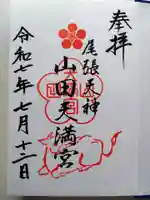 奉拝
尾張天神
山田天満宮
令和七年七月十二日